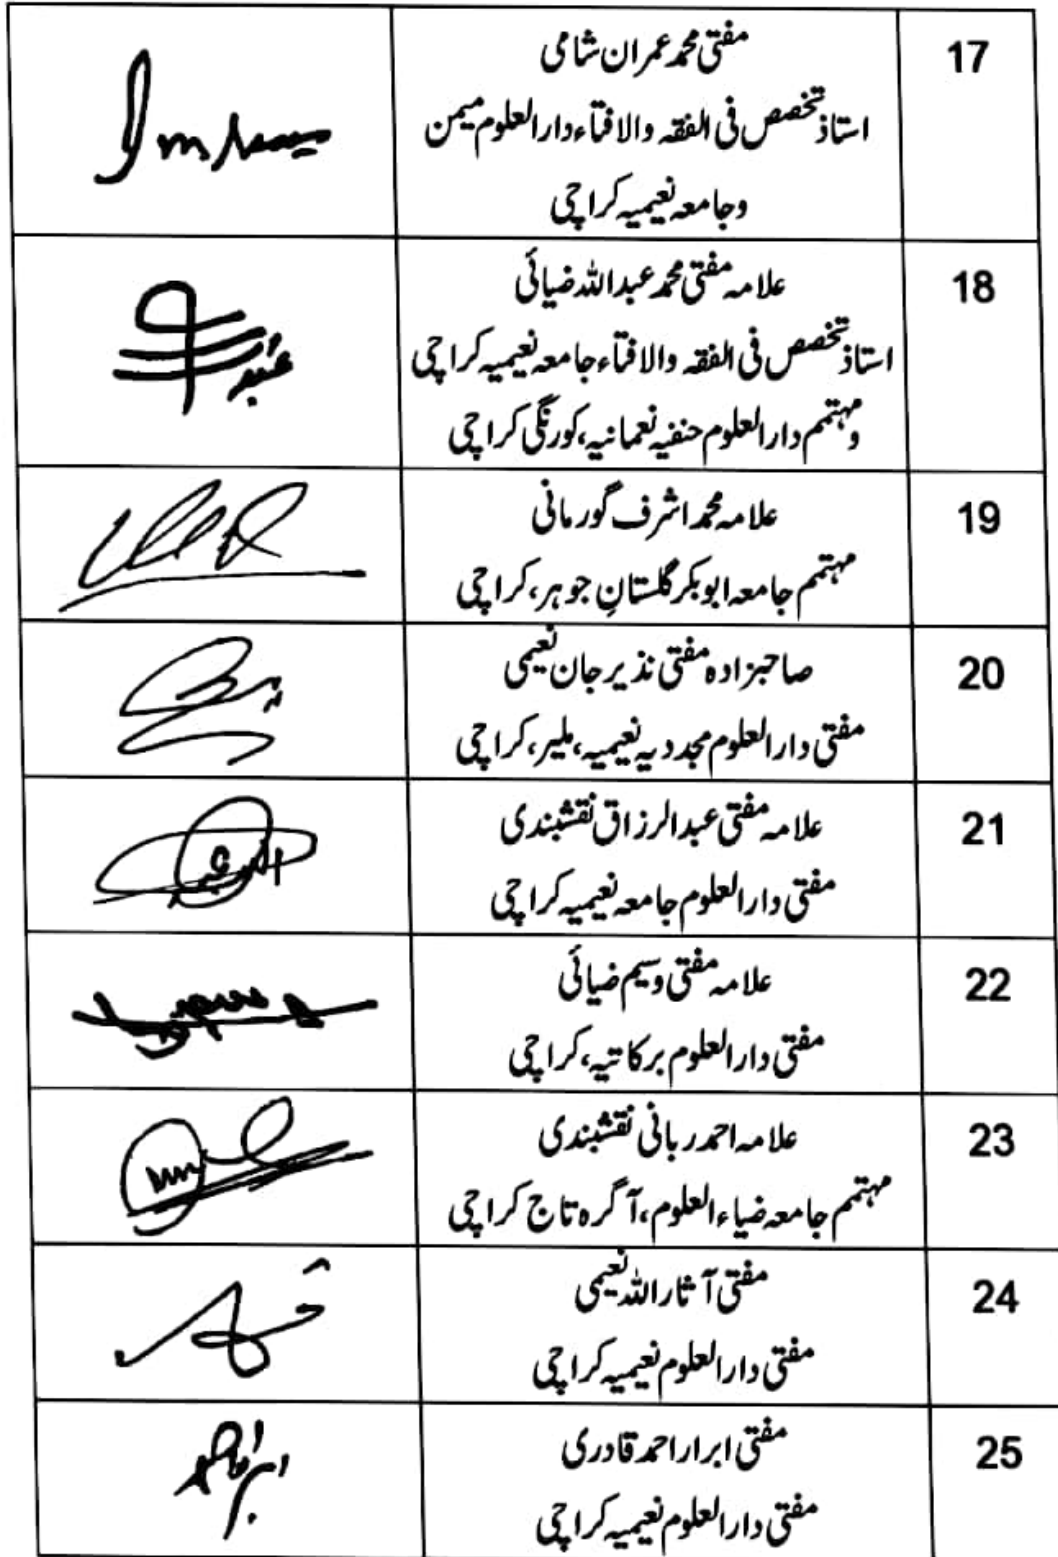 17
مفتی محمد عمران شامی
استاذ تخصص فی الفقہ والافتاء دارالعلوم میمن
وجامعہ نعیمیہ کراچی
18
علامہ مفتی محمد عبداللہ ضیائی
استاذ تخصص فی الفقہ والافتاء جامعہ نعیمیہ کراچی
ومہتمم دارالعلوم حنفیہ نعمانیہ، کورنگی کراچی
19
علامہ محمد اشرف گورمانی
مہتمم جامعہ ابوبکر گلستانِ جوہر، کراچی
20
صاحبزادہ مفتی نذیر جان نعیمی
مفتی دارالعلوم مجددیہ نعیمیہ، ملیر، کراچی
21
علامہ مفتی عبدالرزاق نقشبندی
مفتی دارالعلوم جامعہ نعیمیہ کراچی
22
علامہ مفتی وسیم ضیائی
مفتی دارالعلوم برکاتیہ، کراچی
23
علامہ احمد ربانی نقشبندی
مہتمم جامعہ ضیاء العلوم، آگرہ تاج کراچی
24
مفتی آثار اللہ نعیمی
مفتی دارالعلوم نعیمیہ کراچی
25
مفتی ابرار احمد قادری
مفتی دارالعلوم نعیمیہ کراچی